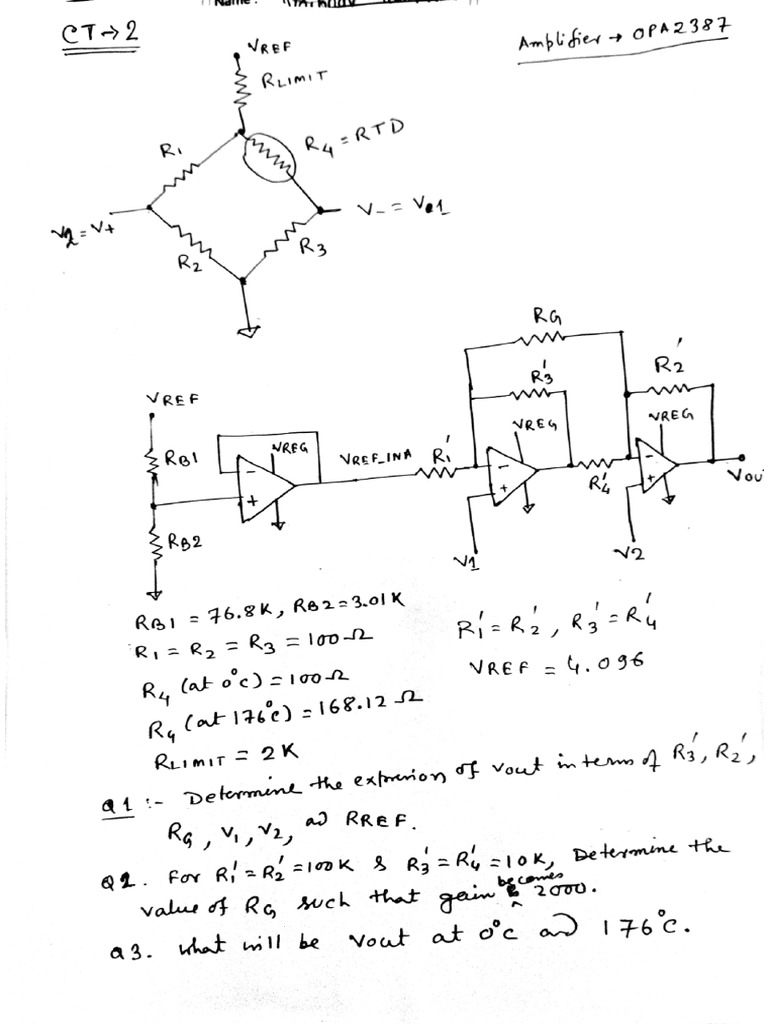 Name :
CT→2
Amplifier → OPA2387
VREF
RLIMIT
R1
R4 = RTD
V2 = V+
V- = V01
R2
R3
RG
R3'
R2'
VREF
VREG
VREG
VREG
RB1
VREF_INA
R1'
R4'
VOUT
RB2
V1
V2
RB1 = 76.8K, RB2 = 3.01K
R1' = R2', R3' = R4'
R1 = R2 = R3 = 100Ω
VREF = 4.096
R4 (at 0°C) = 100Ω
R4 (at 176°C) = 168.12Ω
RLIMIT = 2K
Q1 :- Determine the expression of Vout in terms of R3', R2',
RG, V1, V2, and RREF.
Q2. For R1' = R2' = 100K & R3' = R4' = 10K, Determine the
value of RG such that gain becomes 2000.
Q3. what will be Vout at 0°C and 176°C.